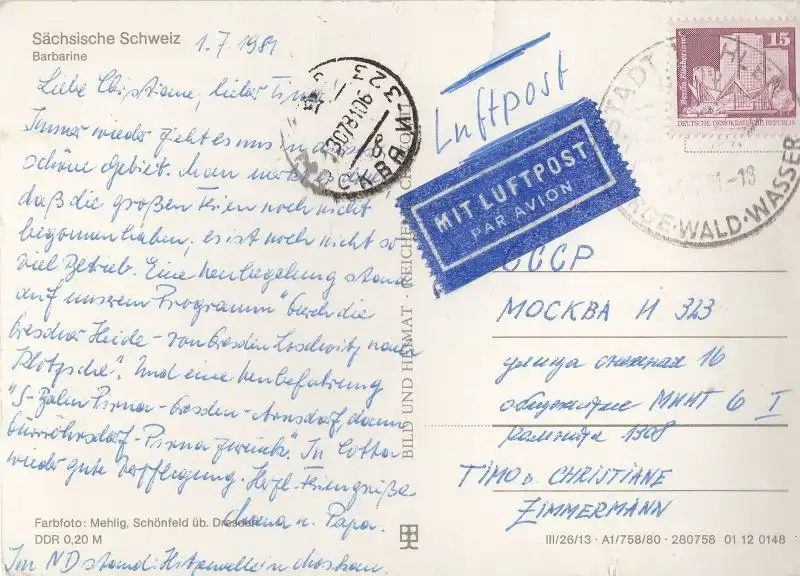 Sächsische Schweiz
Barbarine
1.7.1981
Liebe Christiane, lieber Timo
Immer wieder zieht es uns in dieses
schöne Gebiet. Man merkt
daß die großen Ferien noch nicht
begonnen haben, es ist noch nicht so
viel Betrieb. Eine Neubegehung stand
auf unserem Programm "durch die
Dresdner Heide - von Dresden Loschwitz nach
Klotzsche". Und eine Neubefahrung
"S-Bahn Pirna - Dresden - Arnsdorf, dann
Dürröhrsdorf - Pirna zurück". In Cotta
wieder gute Verpflegung. Herzl. Feriengrüße
Mama u. Papa.
Im ND stand: Hitzewelle in Moskau.
Farbfoto: Mehlig, Schönfeld üb. Dresden
DDR 0,20 M
BILD UND HEIMAT · REICHENBACH
МОСКВА И-323
Luftpost
MIT LUFTPOST
PAR AVION
15
Berlin, Fischerinsel
DEUTSCHE DEMOKRATISCHE REPUBLIK
STADT
WALD·WASSER
СССР
МОСКВА И 323
улица снежная 16
общежитие МИИТ 6 I
комната 1308
TIMO u. CHRISTIANE
ZIMMERMANN
III/26/13 · A1/758/80 · 280758 01 12 0148